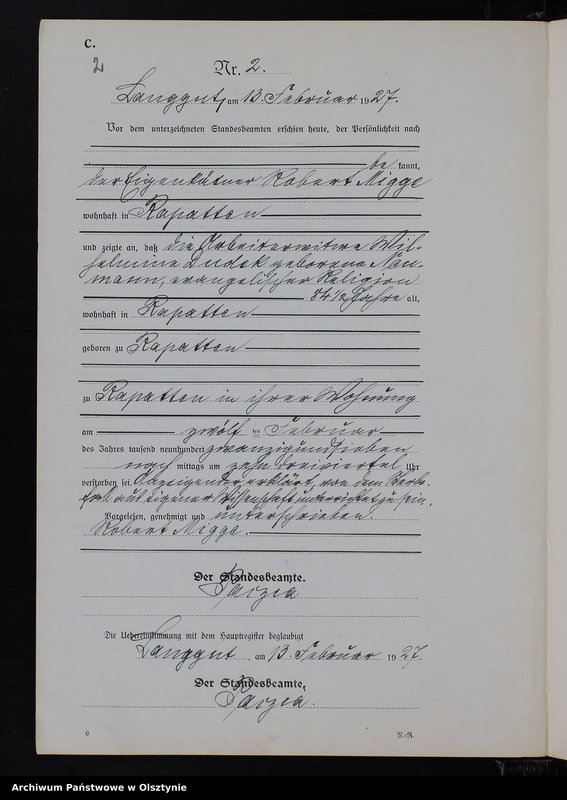 C.
2
Nr. 2.
Langgut, am 13. Februar 1927.
Vor dem unterzeichneten Standesbeamten erschien heute, der Persönlichkeit nach
be kannt,
der Eigenkätner Robert Migge
wohnhaft in Rapatten
und zeigte an, daß die Arbeiterwitwe Wil-
helmine Dudek geborene Neu-
mann, evangelischer Religion
84 1/2 Jahre alt,
wohnhaft in Rapatten
geboren zu Rapatten
zu Rapatten in ihrer Wohnung
am zwölf ten Februar
des Jahres tausend neunhundert zwanzigundsieben
nach mittags um zehn dreiviertel Uhr
verstorben sei. Anzeigender erklärt, von dem Sterbe-
fall aus eigener Wissenschaft unterrichtet zu sein.
Vorgelesen, genehmigt und unterschrieben.
Robert Migge.
Der Standesbeamte.
Die Uebereinstimmung mit dem Hauptregister beglaubigt
Langgut, am 13. Februar 1927.
Der Standesbeamte,
6
N.-R.
Archiwum Państwowe w Olsztynie